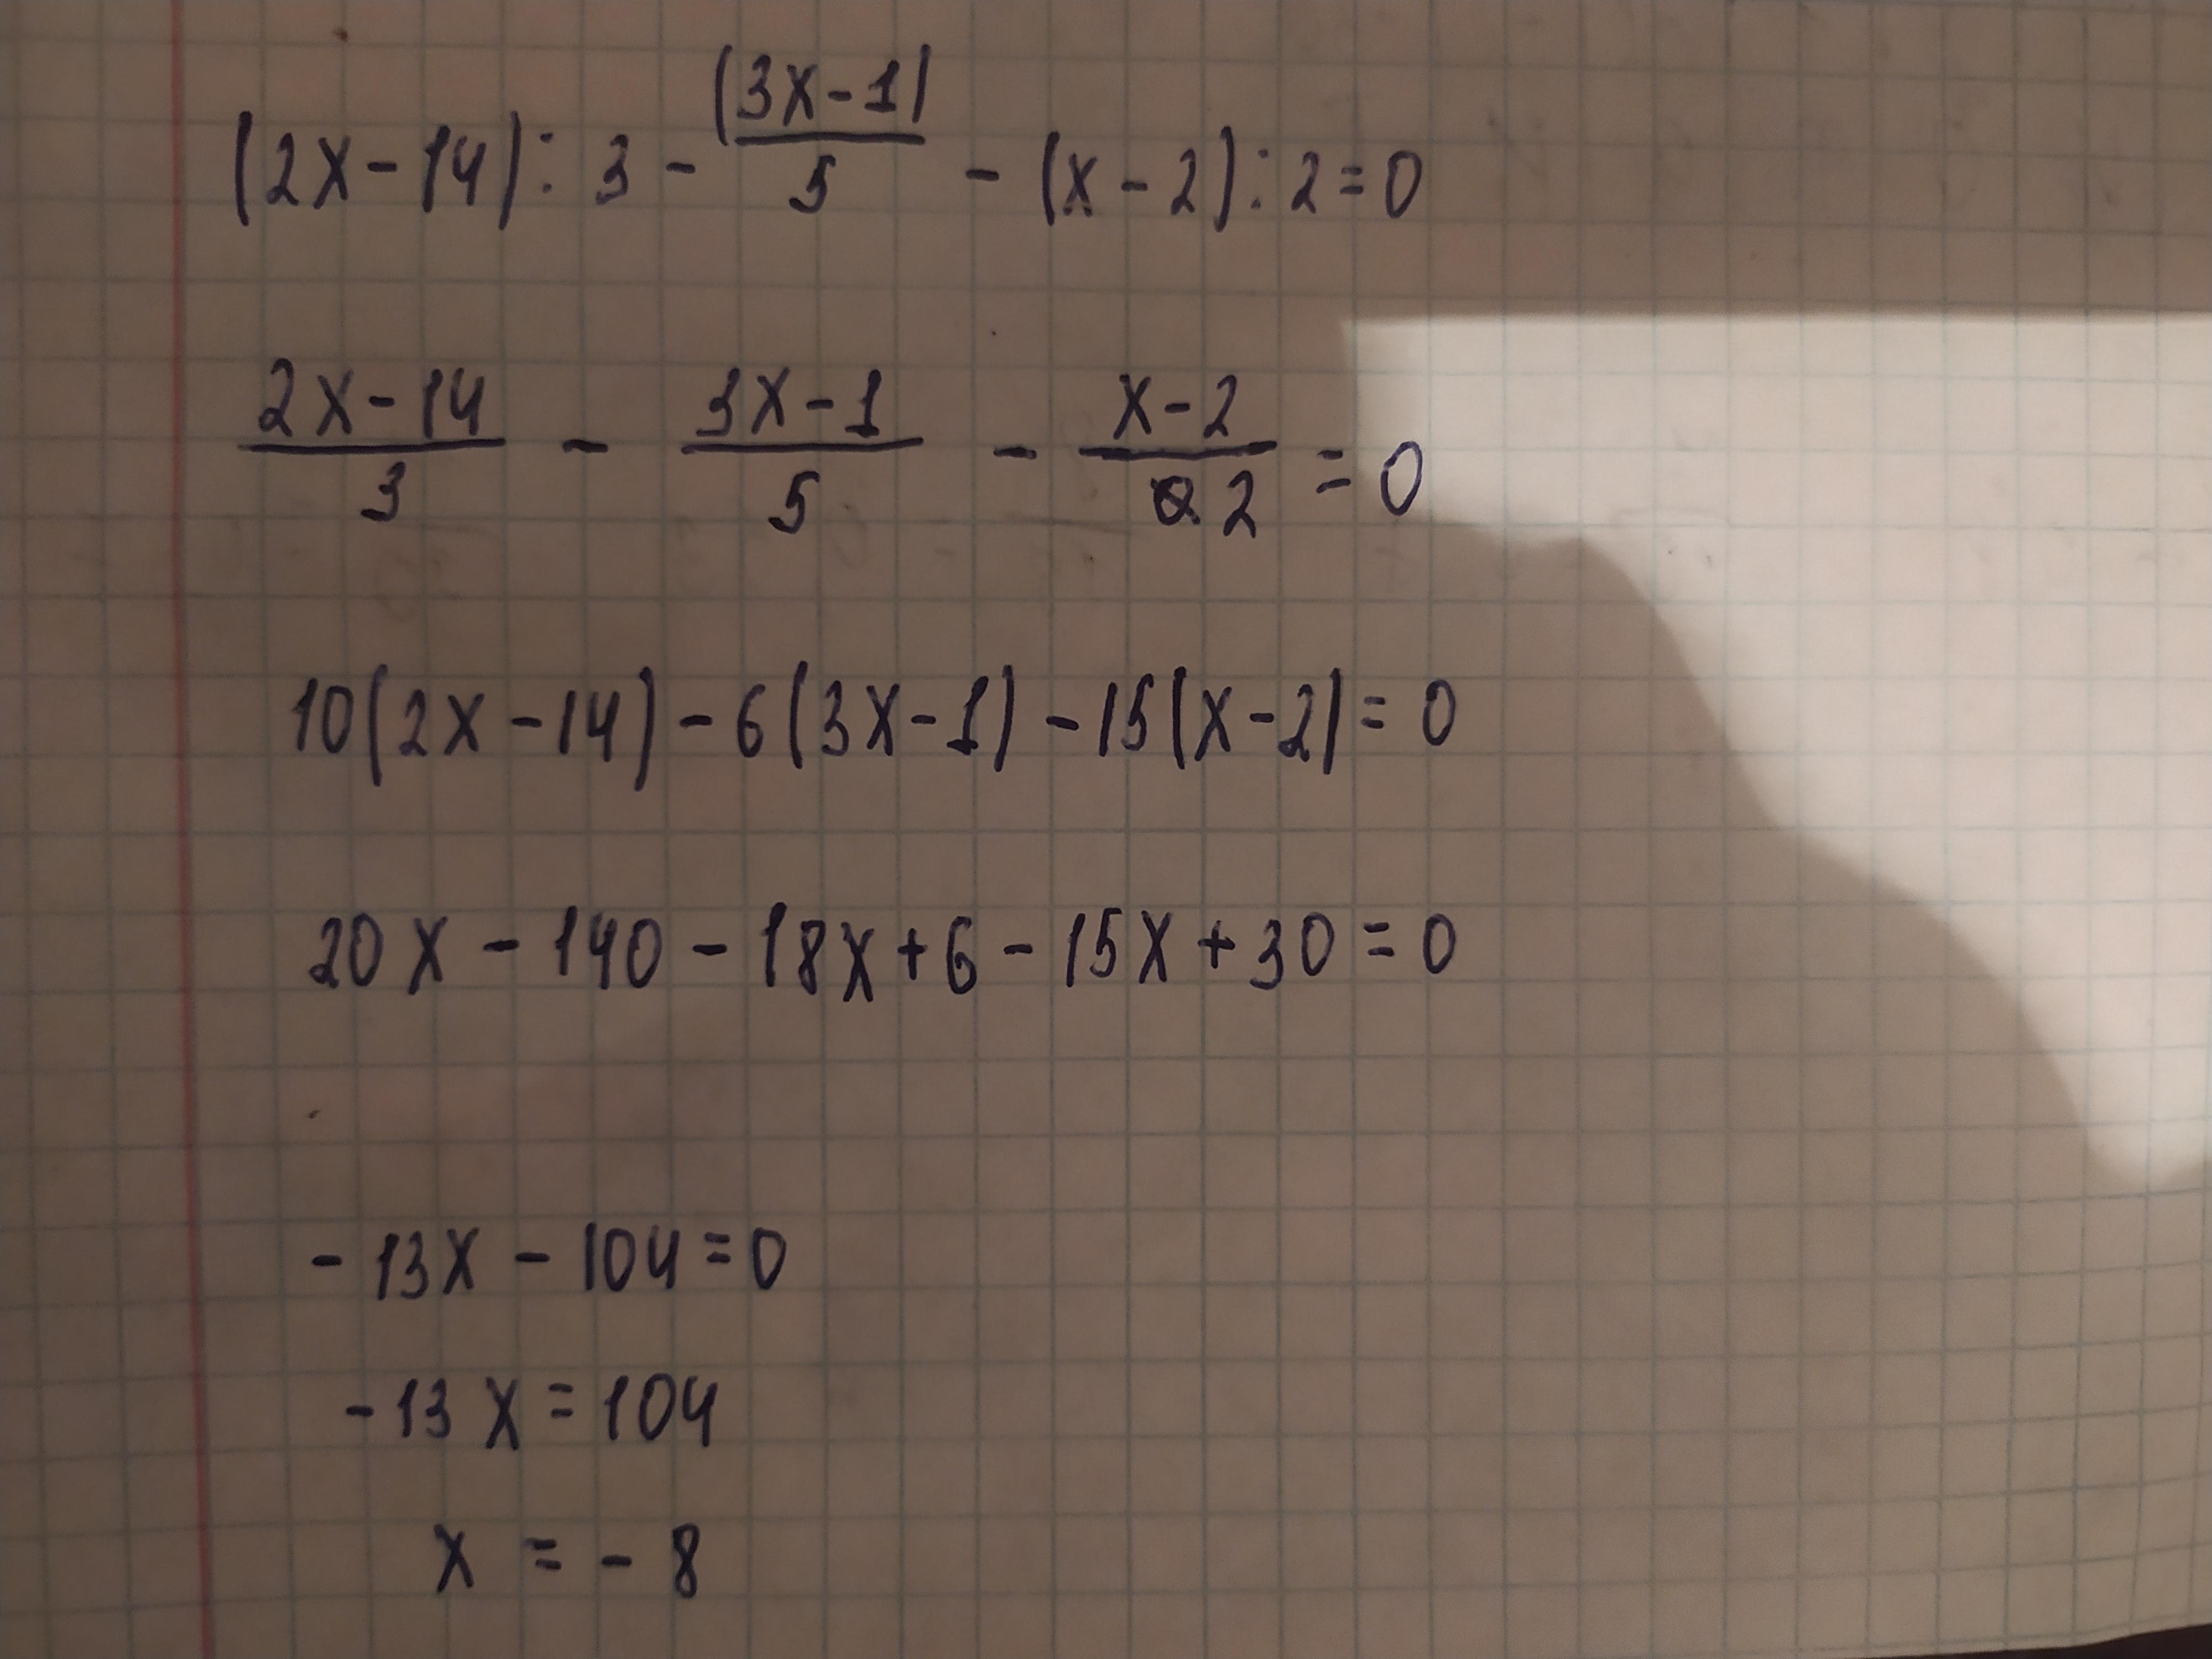 (2x-14):3 - (3x-1)/5 - (x-2):2=0
(2x-14)/3 - (3x-1)/5 - (x-2)/2 =0
10(2x-14)-6(3x-1)-15(x-2)=0
20x-140-18x+6-15x+30=0
-13x-104=0
-13x=104
x = -8